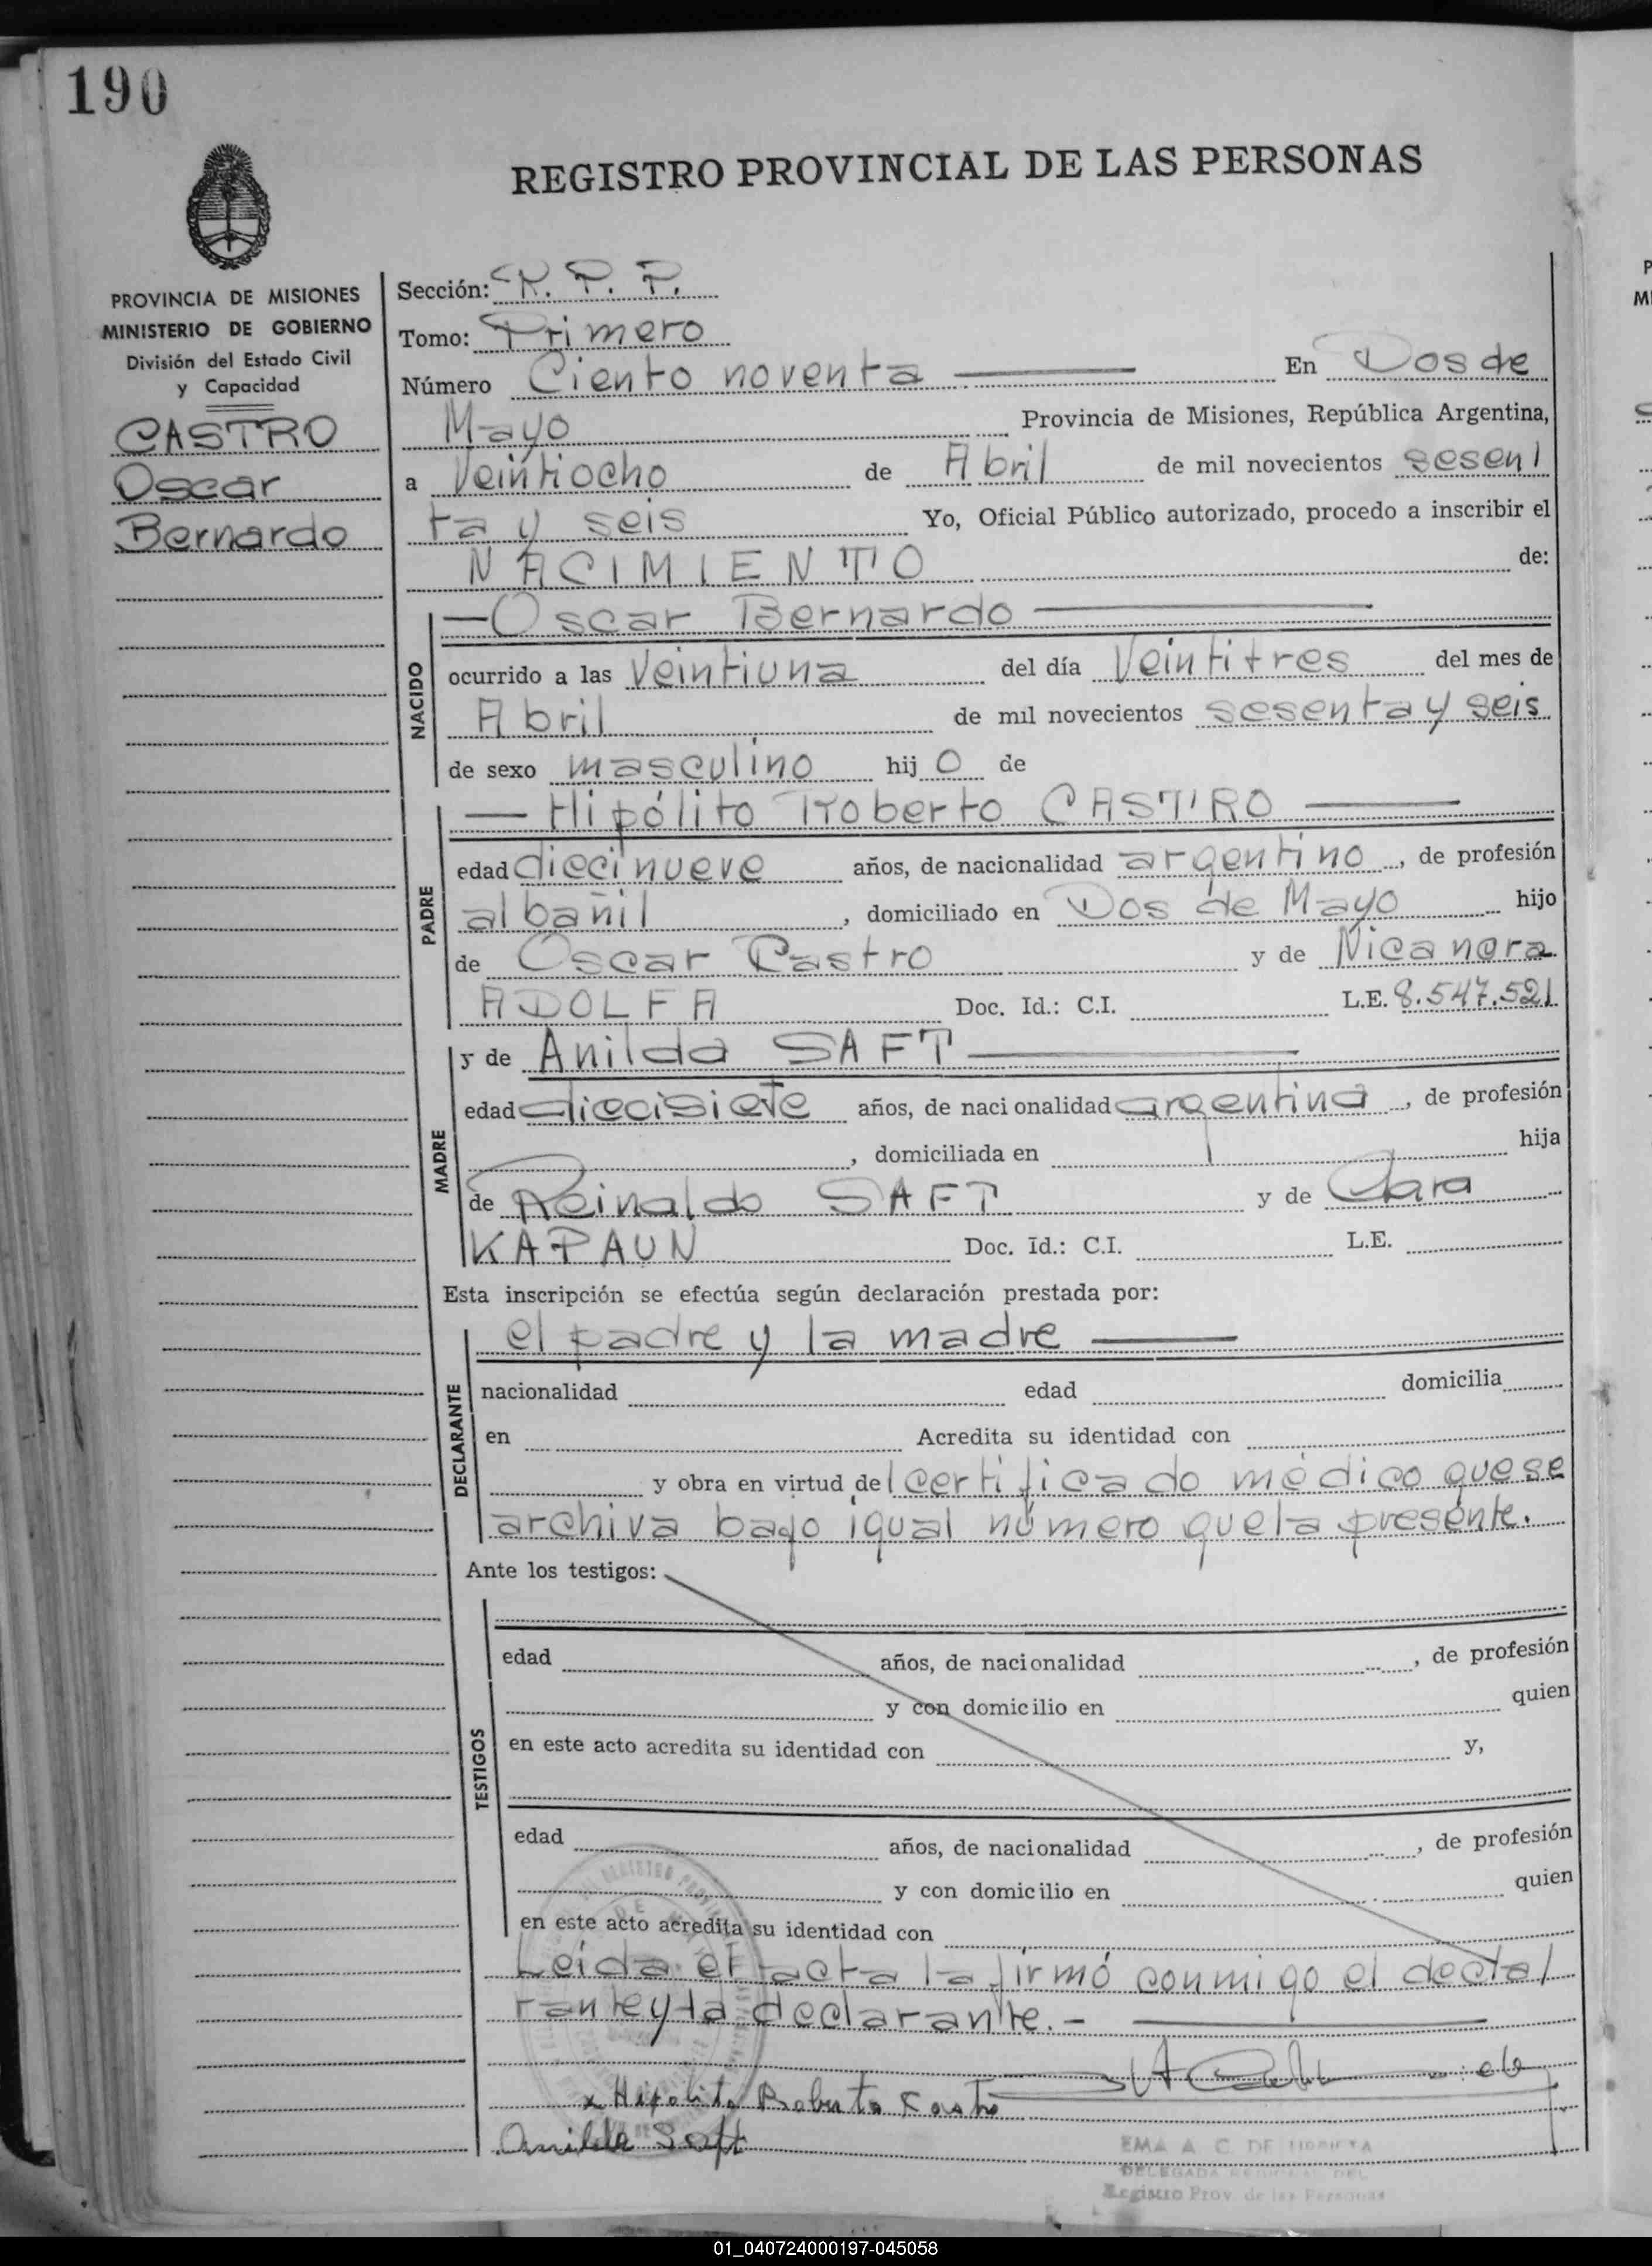 190
REGISTRO PROVINCIAL DE LAS PERSONAS
PROVINCIA DE MISIONES
MINISTERIO DE GOBIERNO
División del Estado Civil
y Capacidad
CASTRO
Oscar
Bernardo
Sección: R. P. P.
Tomo: Primero
Número Ciento noventa En Dos de
Mayo Provincia de Misiones, República Argentina,
a Veintiocho de Abril de mil novecientos sesen
ta y seis Yo, Oficial Público autorizado, procedo a inscribir el
NACIMIENTO de:
NACIDO
Oscar Bernardo
ocurrido a las Veintiuna del día Veintitres del mes de
Abril de mil novecientos sesenta y seis
de sexo masculino hij o de
PADRE
Hipólito Roberto CASTRO
edad diecinueve años, de nacionalidad argentino, de profesión
albañil, domiciliado en Dos de Mayo hijo
de Oscar Castro y de Nicanora
ADOLFA Doc. Id.: C.I. L.E. 8.547.521
MADRE
y de Anilda SAFT
edad diecisiete años, de nacionalidad argentina, de profesión
, domiciliada en hija
de Reinaldo SAFT y de Clara
KAPAUN Doc. Id.: C.I. L.E.
Esta inscripción se efectúa según declaración prestada por:
DECLARANTE
el padre y la madre
nacionalidad edad domicilia
en Acredita su identidad con
y obra en virtud del certificado médico que se
archiva bajo igual número que la presente.
Ante los testigos:
TESTIGOS
edad años, de nacionalidad , de profesión
y con domicilio en quien
en este acto acredita su identidad con y,
edad años, de nacionalidad , de profesión
y con domicilio en quien
en este acto acredita su identidad con
Leida el acta la firmó conmigo el decla
rante y la declarante.-
x Hipolito Roberto Castro
Anilda Saft
EMA A. C. DE
DELEGADA REGIONAL DEL
Registro Prov. de las Personas
01_040724000197-045058